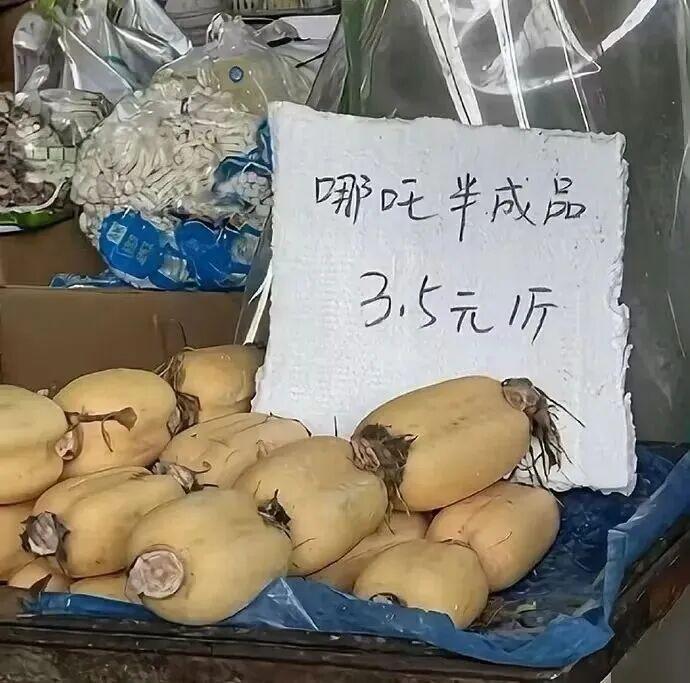 哪吒半成品
3.5元1斤